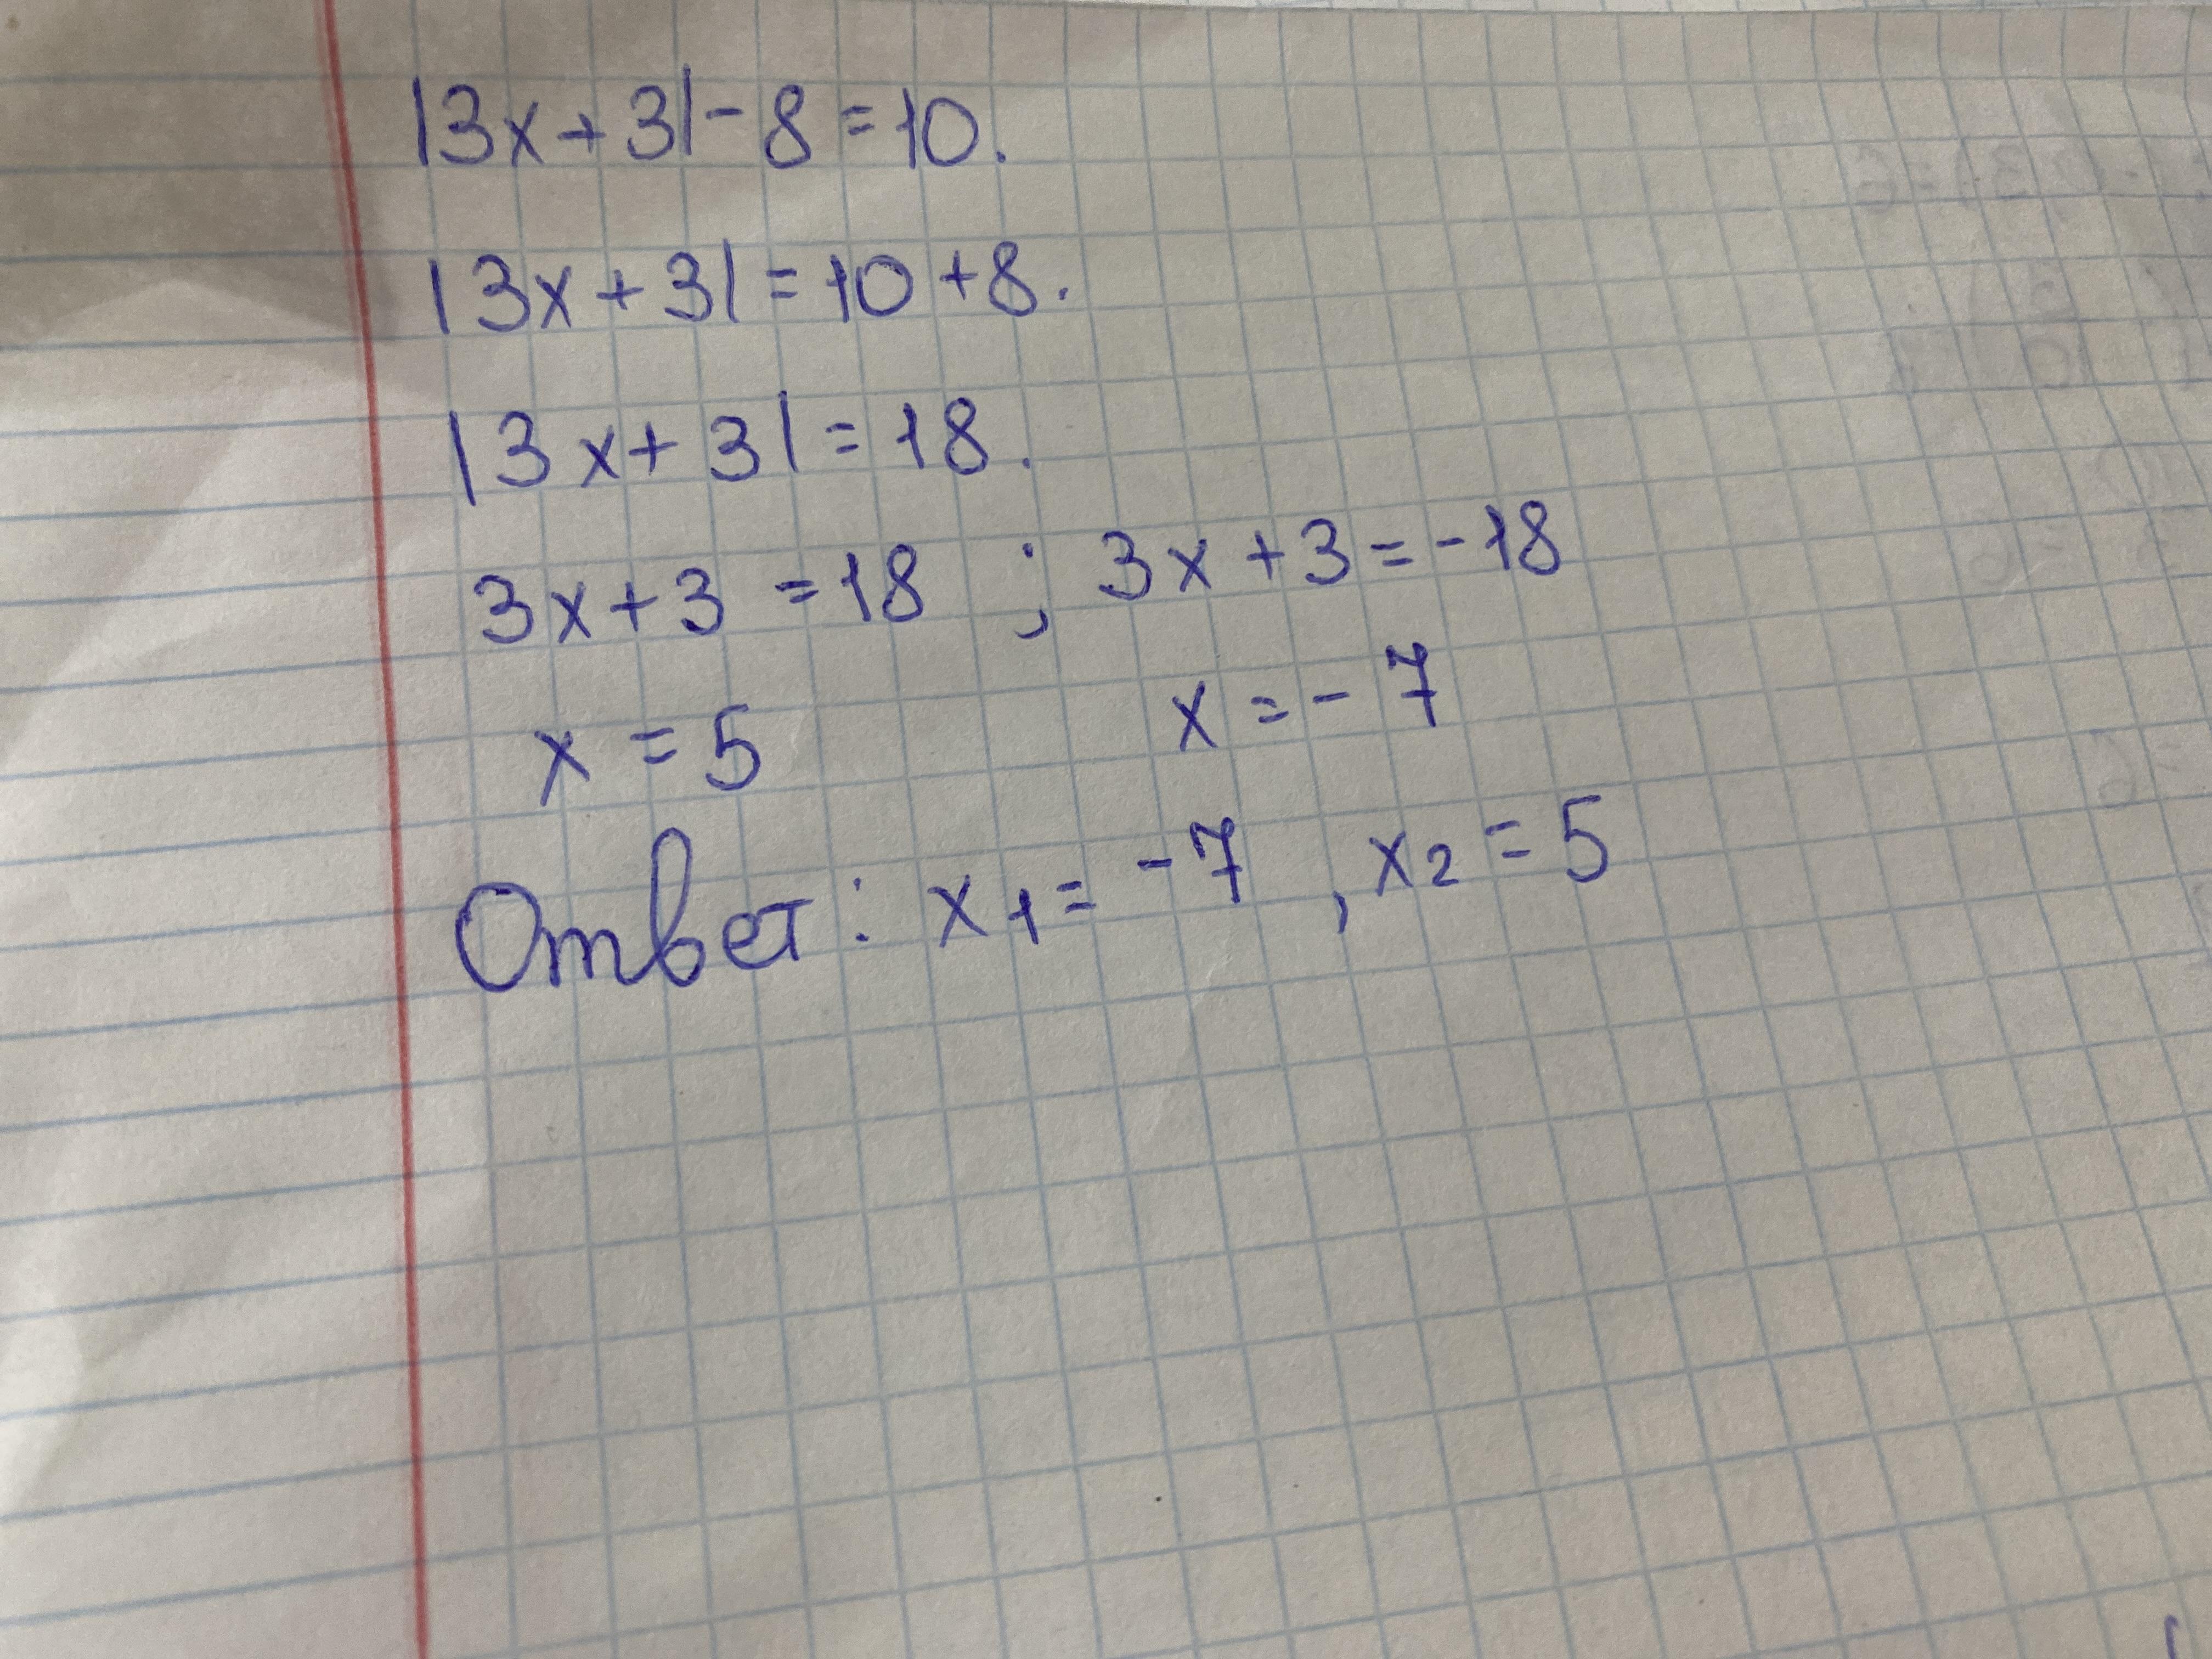 |3x+3|-8=10.
|3x+3|=10+8.
|3x+3|=18.
3x+3=18 ; 3x+3=-18
x=5 x=-7
Ответ: x₁=-7, x₂=5